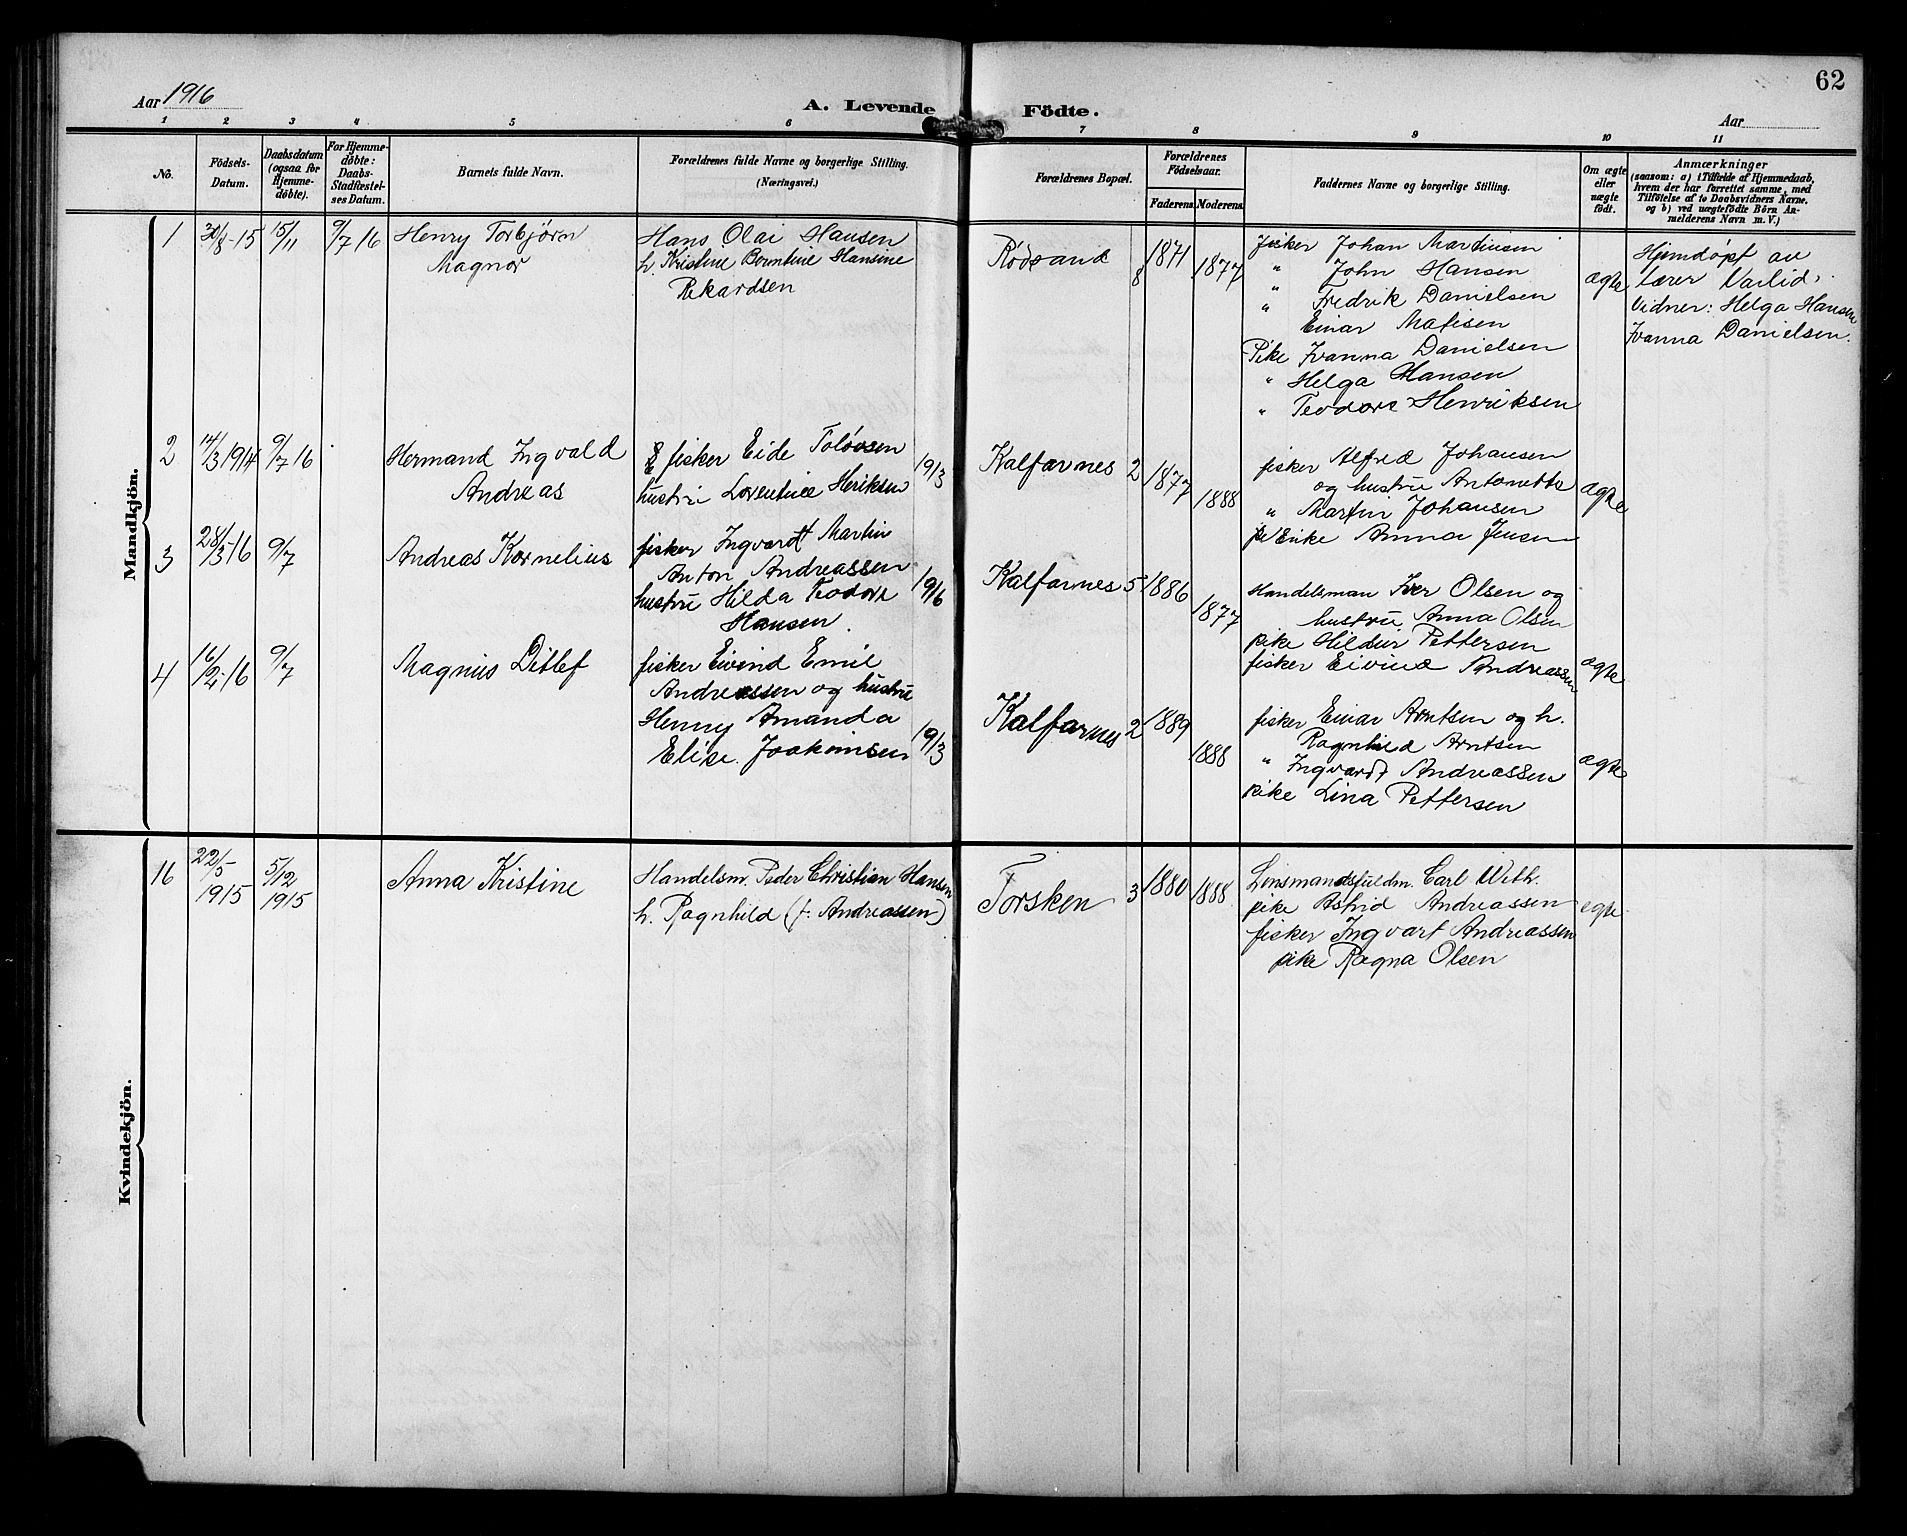 62
Aar 1916
A. Levende Födte.
Aar
1 2 3 4 5 6 7 8 9 10 11
No.
Födsels-
Datum.
Daabsdatum
(ogsaa for
Hjemme-
døbte).
For Hjemme-
døbte:
Daabs-
Stadfæstel-
ses Datum.
Barnets fulde Navn.
Forældrenes fulde Navne og borgerlige Stilling.
(Næringsvei.)
Forældrenes Bopæl.
Forældrenes
Födselsaar.
Faderens Moderens
Faddernes Navne og borgerlige Stilling.
Om ægte
eller
uægte
født.
Anmærkninger
(saasom: a) i Tilfælde af Hjemmedaab,
hvem der har forrettet samme, med
Tilføielse af to Daabsvidners Navne,
og b) ved uægtefödte Börn An-
melderens Navn m. V.)
Mandkjön.
1
30/8-15
15/11
9/7 16
Henry Torbjørn
Magnor
Hans Olai Hansen
h. Kristine Berntine Hansine
Rikardsen
Rödsand
8
1871
1877
fisker Johan Martinsen
" John Hansen
" Fredrik Danielsen
Einar Matisen
Pike Ivanna Danielsen
" Helga Hansen
" Teodore Henriksen
ægte
Hjemdøpt av
lærer Varlid.
Vidner: Helga Hansen
Ivanna Danielsen.
2
14/3 1914
9/7 16
Hermand Ingvald
Andreas
fisker Eide Toløvsen
hustru Lorentine Heriksen
19/3
Kalfarnes 2
1877
1888
fisker Alfred Johansen
og hustru Antonette
" Martin Johansen
pike Anna Jensen
ægte
3
28/3-16
9/7
Andreas Kornelius
fisker Ingvardt Martin
Anton Andreassen
hustru Hilda Teodore
Hansen.
19/6
Kalfarnes 5
1886
1877
Handelsman Iver Olsen og
hustru Anna Olsen
pike Hildur Pettersen
fisker Eivind Andreassen
ægte
4
16/2-16
9/7
Magnus Ditlef
fisker Eivind Emil
Andreassen og hustru
Henny Amanda
Elise Joakimsen
19/3
Kalfarnes 2
1889
1888
fisker Einar Arntsen og h.
Ragnhild Arntsen
" Ingvardt Andreassen
pike Lina Pettersen
ægte
Kvindekjön.
16
22/5-
1915
5/12
1915
Anna Kristine
Handelsm. Peder Christian Hansen
h. Ragnhild (f. Andreassen)
Torsken 3
1880
1888
Linsmandsfuldm. Carl With.
pike Astrid Andreassen
fisker Ingvart Andreassen
pike Ragna Olsen
egte